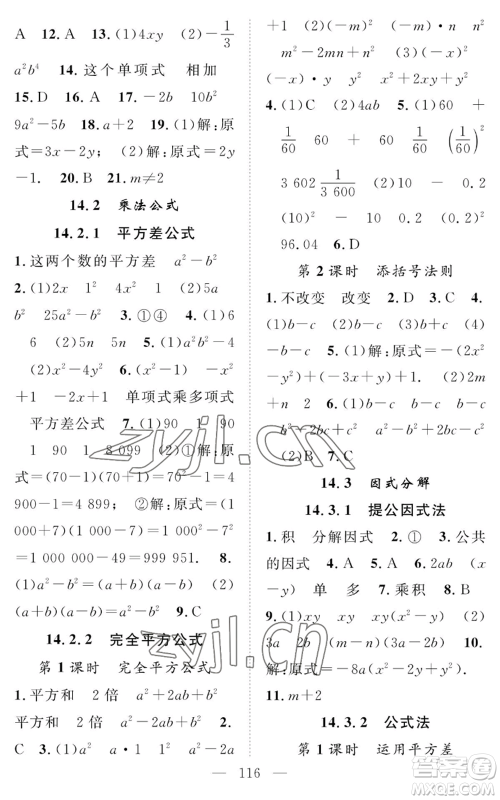 A 12. A 13. (1)4xy (2)－1/3
a²b⁴ 14. 这个单项式 相加
15. D 16. A 17. －2b 10b²
9a²－5b 18. a＋2 19. (1)解：原
式＝3x－2y； (2)解：原式＝2y
－1. 20. B 21. m≠2
14.2 乘法公式
14.2.1 平方差公式
1. 这两个数的平方差 a²－b²
2. (1)2x 1² 4x²－1 (2)5a
b² 25a²－b⁴ 3. ①④ 4. (1)6
6 (2)5n 5n 5. (1)a²－16
(2)x²－4y² 6. (x²－1) －x²
＋1 －2x＋1 单项式乘多项式
平方差公式 7. (1)90 1 90
1 90 1 8 099 (2)①解：原式
＝(70－1)(70＋1)＝70²－1²＝4
900－1＝4 899； ②解：原式＝(1
000－7)(1 000＋7)＝1 000²－7²
＝1 000 000－49＝999 951. 8.
(1)a²－b² a－b a＋b (2)
(a＋b)(a－b)＝a²－b² 9. C
14.2.2 完全平方公式
第 1 课时 完全平方公式
1. 平方和 2 倍 a²＋2ab＋b²
平方和 2 倍 a²－2ab＋b² 2.
C 3. (1)a a·1 1 a²＋2a
＋1 (2)m m·n n
m²－2mn＋n² (3)(－x)
(－x)·(－1) (－1) x²＋2x＋1
4. (1)C (2)4ab 5. (1)60 ＋
1/60 60 ＋ 60 1/60 (1/60)²
3 602 1/3 600 (2)10 － 0.2
(2)10 － 10 0.2 (0.2)²
96.04 6. D
第 2 课时 添括号法则
1. 不改变 改变 2. B 3. C
4. (1)b－c (2)b－c (3)b＋c
(4)－b－c 5. (1)解：原式＝(2x
－y²)＋(－3xy²＋y³). (2)2m
＋n 2 6. (1)b－c b－c b－c
b²－2bc＋c² a²－b²＋2bc－c²
(2)C 7. C
14.3 因式分解
14.3.1 提公因式法
1. 积 分解因式 2. ① 3. 公共
的因式 4. A 5. A 6. 2ab (x
－y) 单 多 7. 乘积 8. A
9. (1)xy xy xy(x－y) (2)
3a 2b (3a－2b) 10.
解：原式＝－8a(a－2b). 
11. m＋2
14.3.2 公式法
第 1 课时 运用平方差
116
zyjl.cn
zyjl.cn